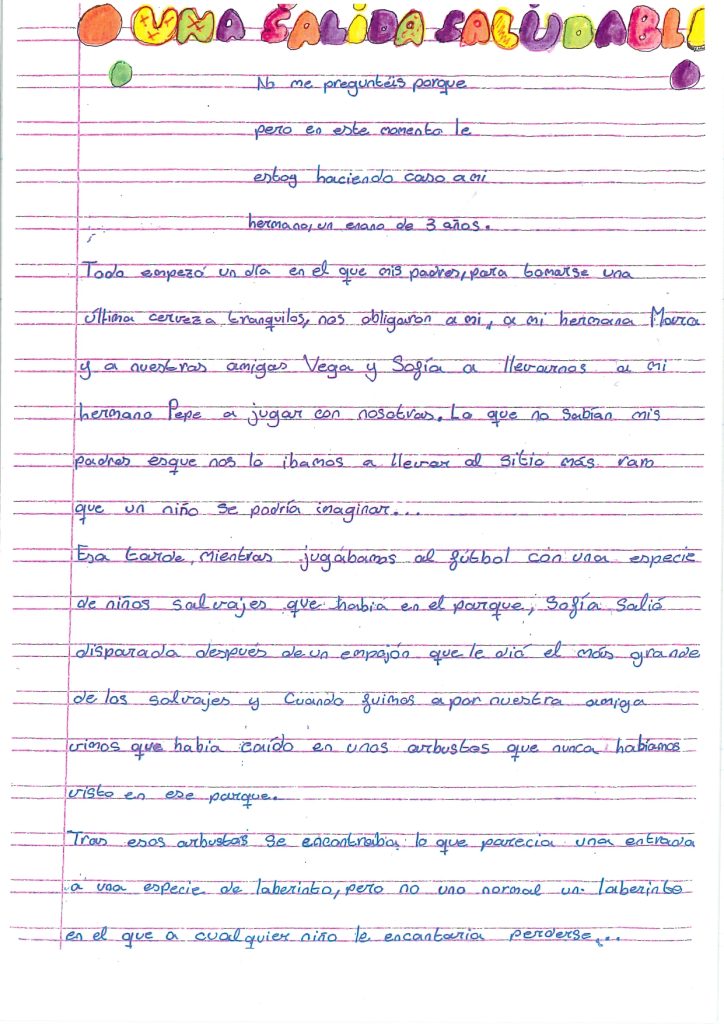 UNA SALIDA SALUDABLE
No me preguntéis porque
pero en este momento le
estoy haciendo caso a mi
hermano, un enano de 3 años.
Todo empezó un día en el que mis padres, para tomarse una
última cerveza tranquilos, nos obligaron a mi, a mi hermana Mara
y a nuestras amigas Vega y Sofía a llevarnos a mi
hermano Pepe a jugar con nosotras. Lo que no sabían mis
padres esque nos lo ibamos a llevar al sitio más raro
que un niño se podría imaginar...
Esa tarde, mientras jugábamos al fútbol con una especie
de niños salvajes que habia en el parque, Sofía salió
disparada después de un empajón que le dió el más grande
de los salvajes y cuando fuimos a por nuestra amiga
vimos que habia caído en unos arbustos que nunca habíamos
visto en ese parque.
Tras esos arbustos se encontraba lo que parecia una entrada
a una especie de laberinto, pero no uno normal un laberinto
en el que a cualquier niño le encantaria perderse,...